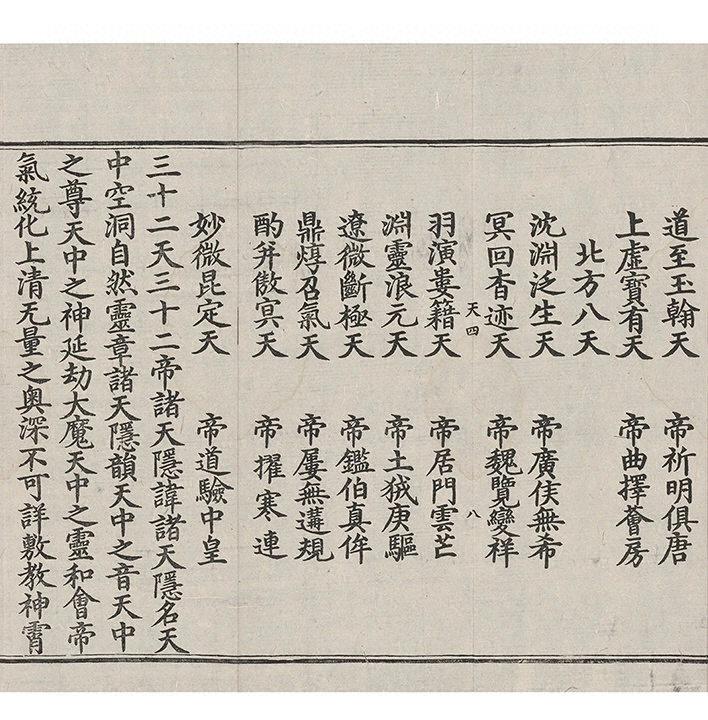 道至玉翰天 帝祈明俱唐
上虛寶有天 帝曲擇薈房
北方八天
沈淵泛生天 帝廣俟無希
冥回杳迹天 帝魏覽變祥
天四 八
羽演婁籍天 帝居門雲芒
淵靈浪元天 帝土狘庚驅
遼微斷極天 帝鑑伯真侔
鼎焞召氣天 帝屢無遘規
酌幷傲㝠天 帝擢寒連
妙微昆定天 帝道驗中皇
三十二天三十二帝諸天隱諱諸天隱名天
中空洞自然靈章諸天隱韻天中之音天中
之尊天中之神延劫大魔天中之靈和會帝
氣統化上清无量之奥深不可詳敷教神霄